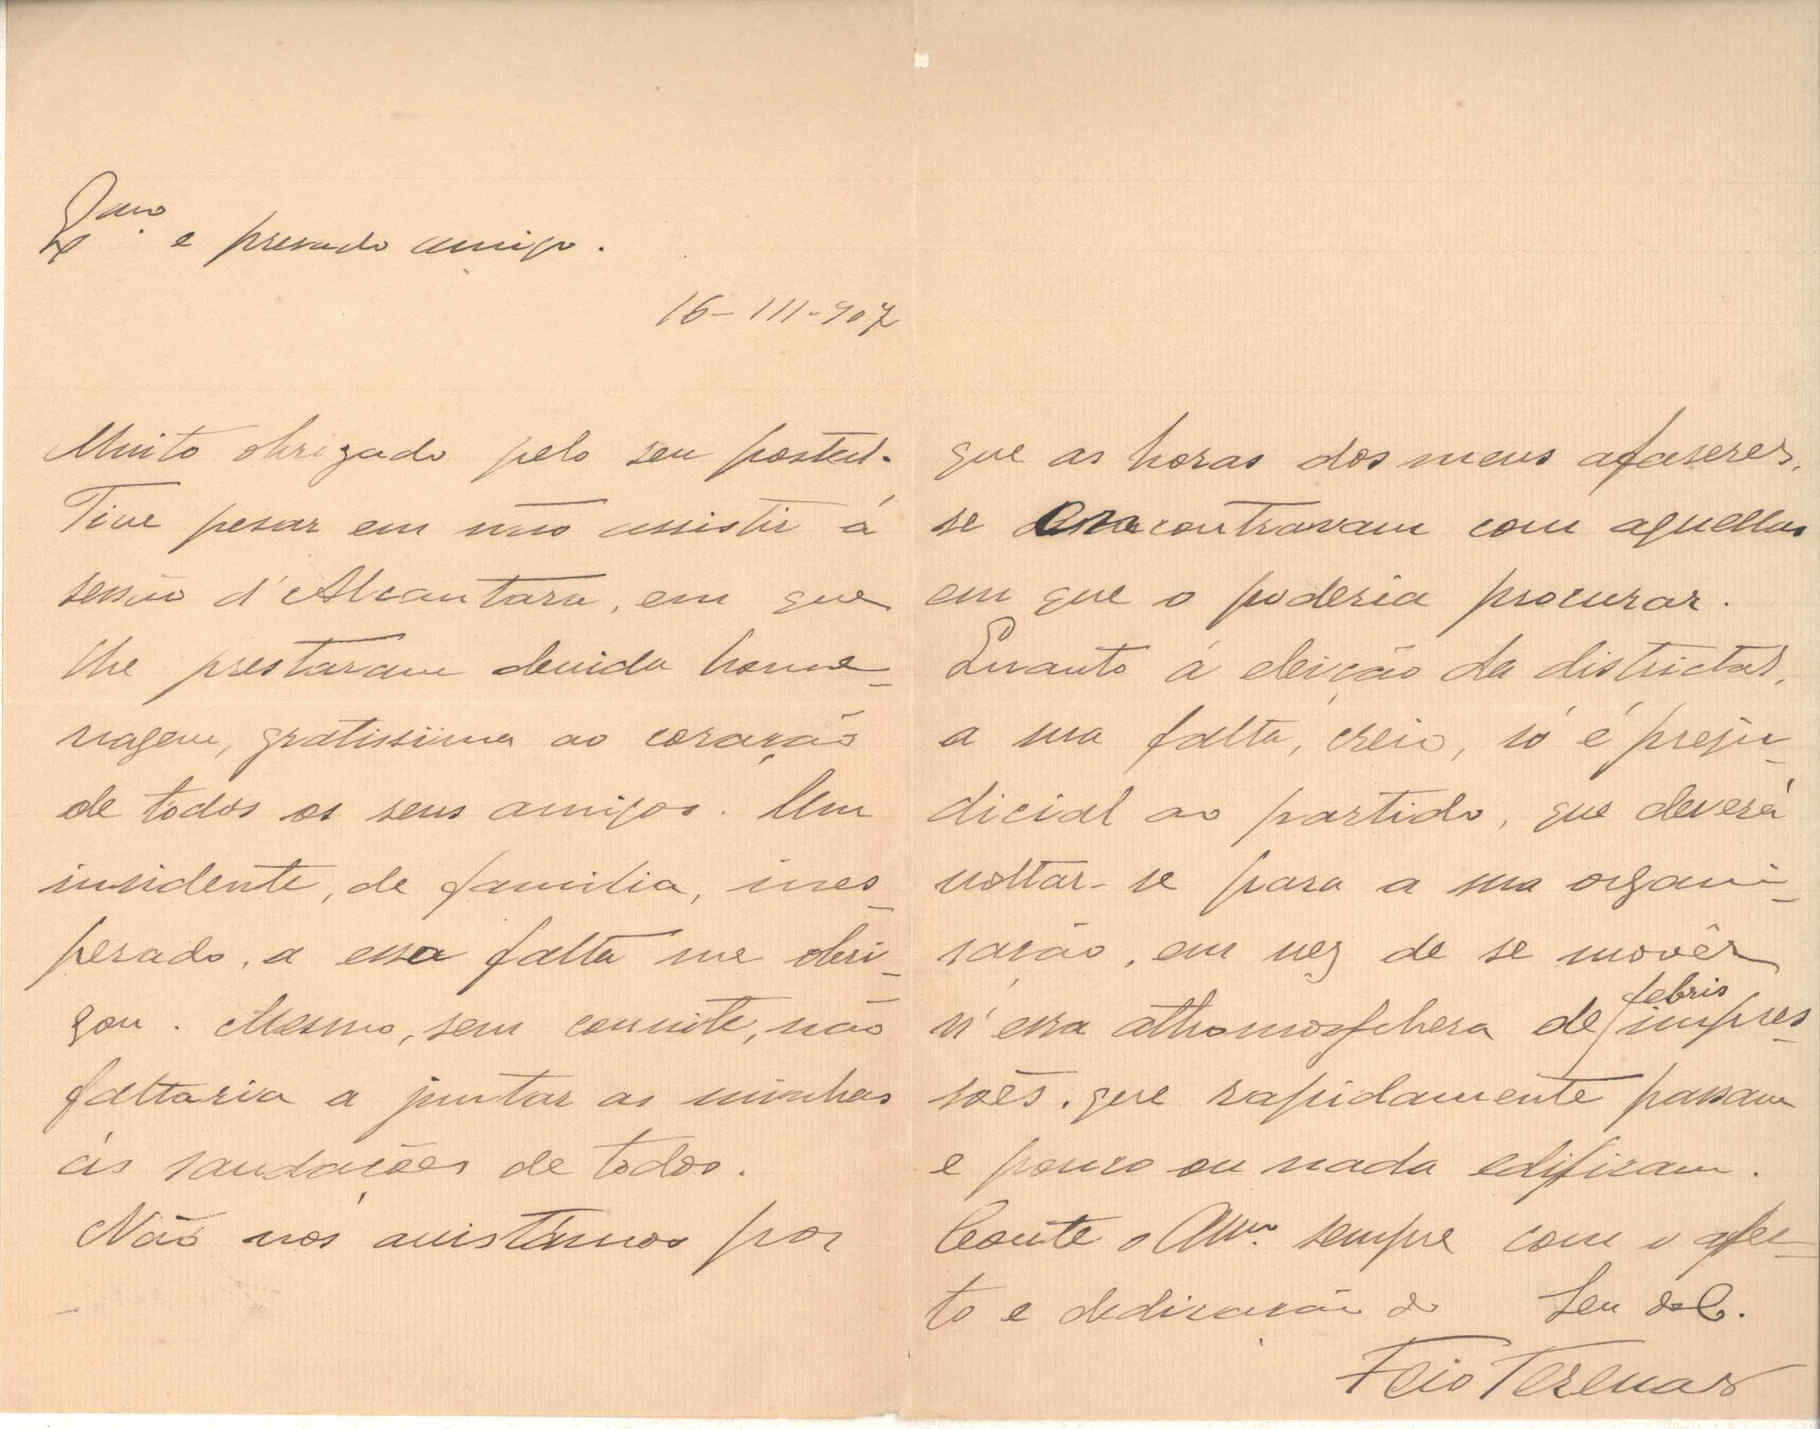 e presado amigo.
16-III-907
Muito obrigado pelo seu postal.
Tive pesar em não assistir á
sessão d'Alcantara, em que
lhe prestaram devida home-
nagem, gratissima ao coração
de todos os seus amigos. Um
insidente, de familia, ines-
perado, a essa falta me obri-
gou. Mesmo, sem convite, não
faltaria a juntar as minhas
ás saudações de todos.
Não nos avistámos por
que as horas dos meus afaseres,
se contravam com aquellas
em que o poderia procurar.
Quanto á eleição da districtal,
a sua falta, creio, só é preju-
dicial ao partido, que deverá
voltar-se para a sua organi-
sação, em vez de se movêr
n'essa athomosphera de febris impres-
sões, que rapidamente passam
e pouco ou nada edificam.
Conte o Am.º sempre com o afec-
to e dedicação do Seu
Feio Terenas